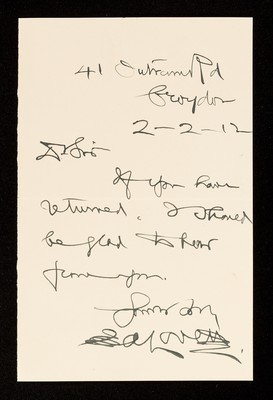 41 Outram Rd
Croydon
2-2-12
Dr Sir
If you have
returned, I should
be glad to hear
from you.